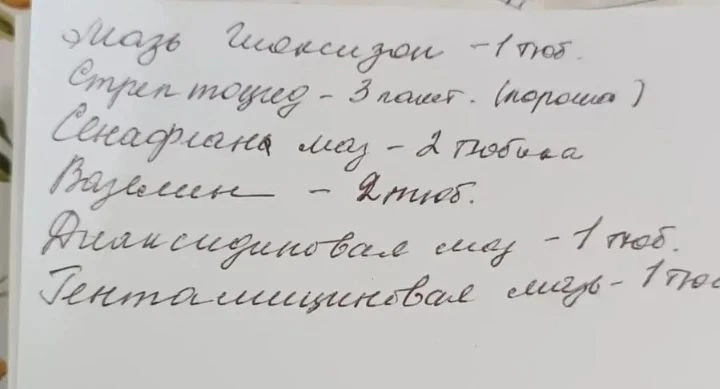 Мазь Гиоксизон - 1 тюб.
Стрептоцид - 3 пакет. (пороша)
Сенафлана маз - 2 тюбика
Вазелин - 2 тюб.
Диоксидиновая маз - 1 тюб.
Гентамициновая мазь - 1 тюб